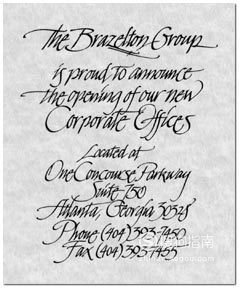 The Brazelton Group
is proud to announce
the opening of our new
Corporate Offices
Located at
One Concourse Parkway
Suite 750
Atlanta, Georgia 30328
Phone (404) 393-7450
Fax (404) 393-7455